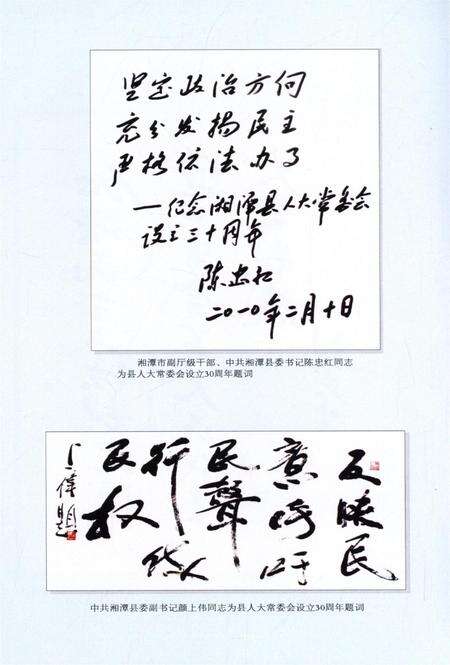 坚定政治方向
充分发扬民主
严格依法办事
—纪念湘潭县人大常委会
设立三十周年
陈忠红
二〇一〇年二月十日
湘潭市副厅级干部、中共湘潭县委书记陈忠红同志
为县人大常委会设立30周年题词
反映民
意呼吁
民聲
行使
民权
上偉題
中共湘潭县委副书记颜上伟同志为县人大常委会设立30周年题词